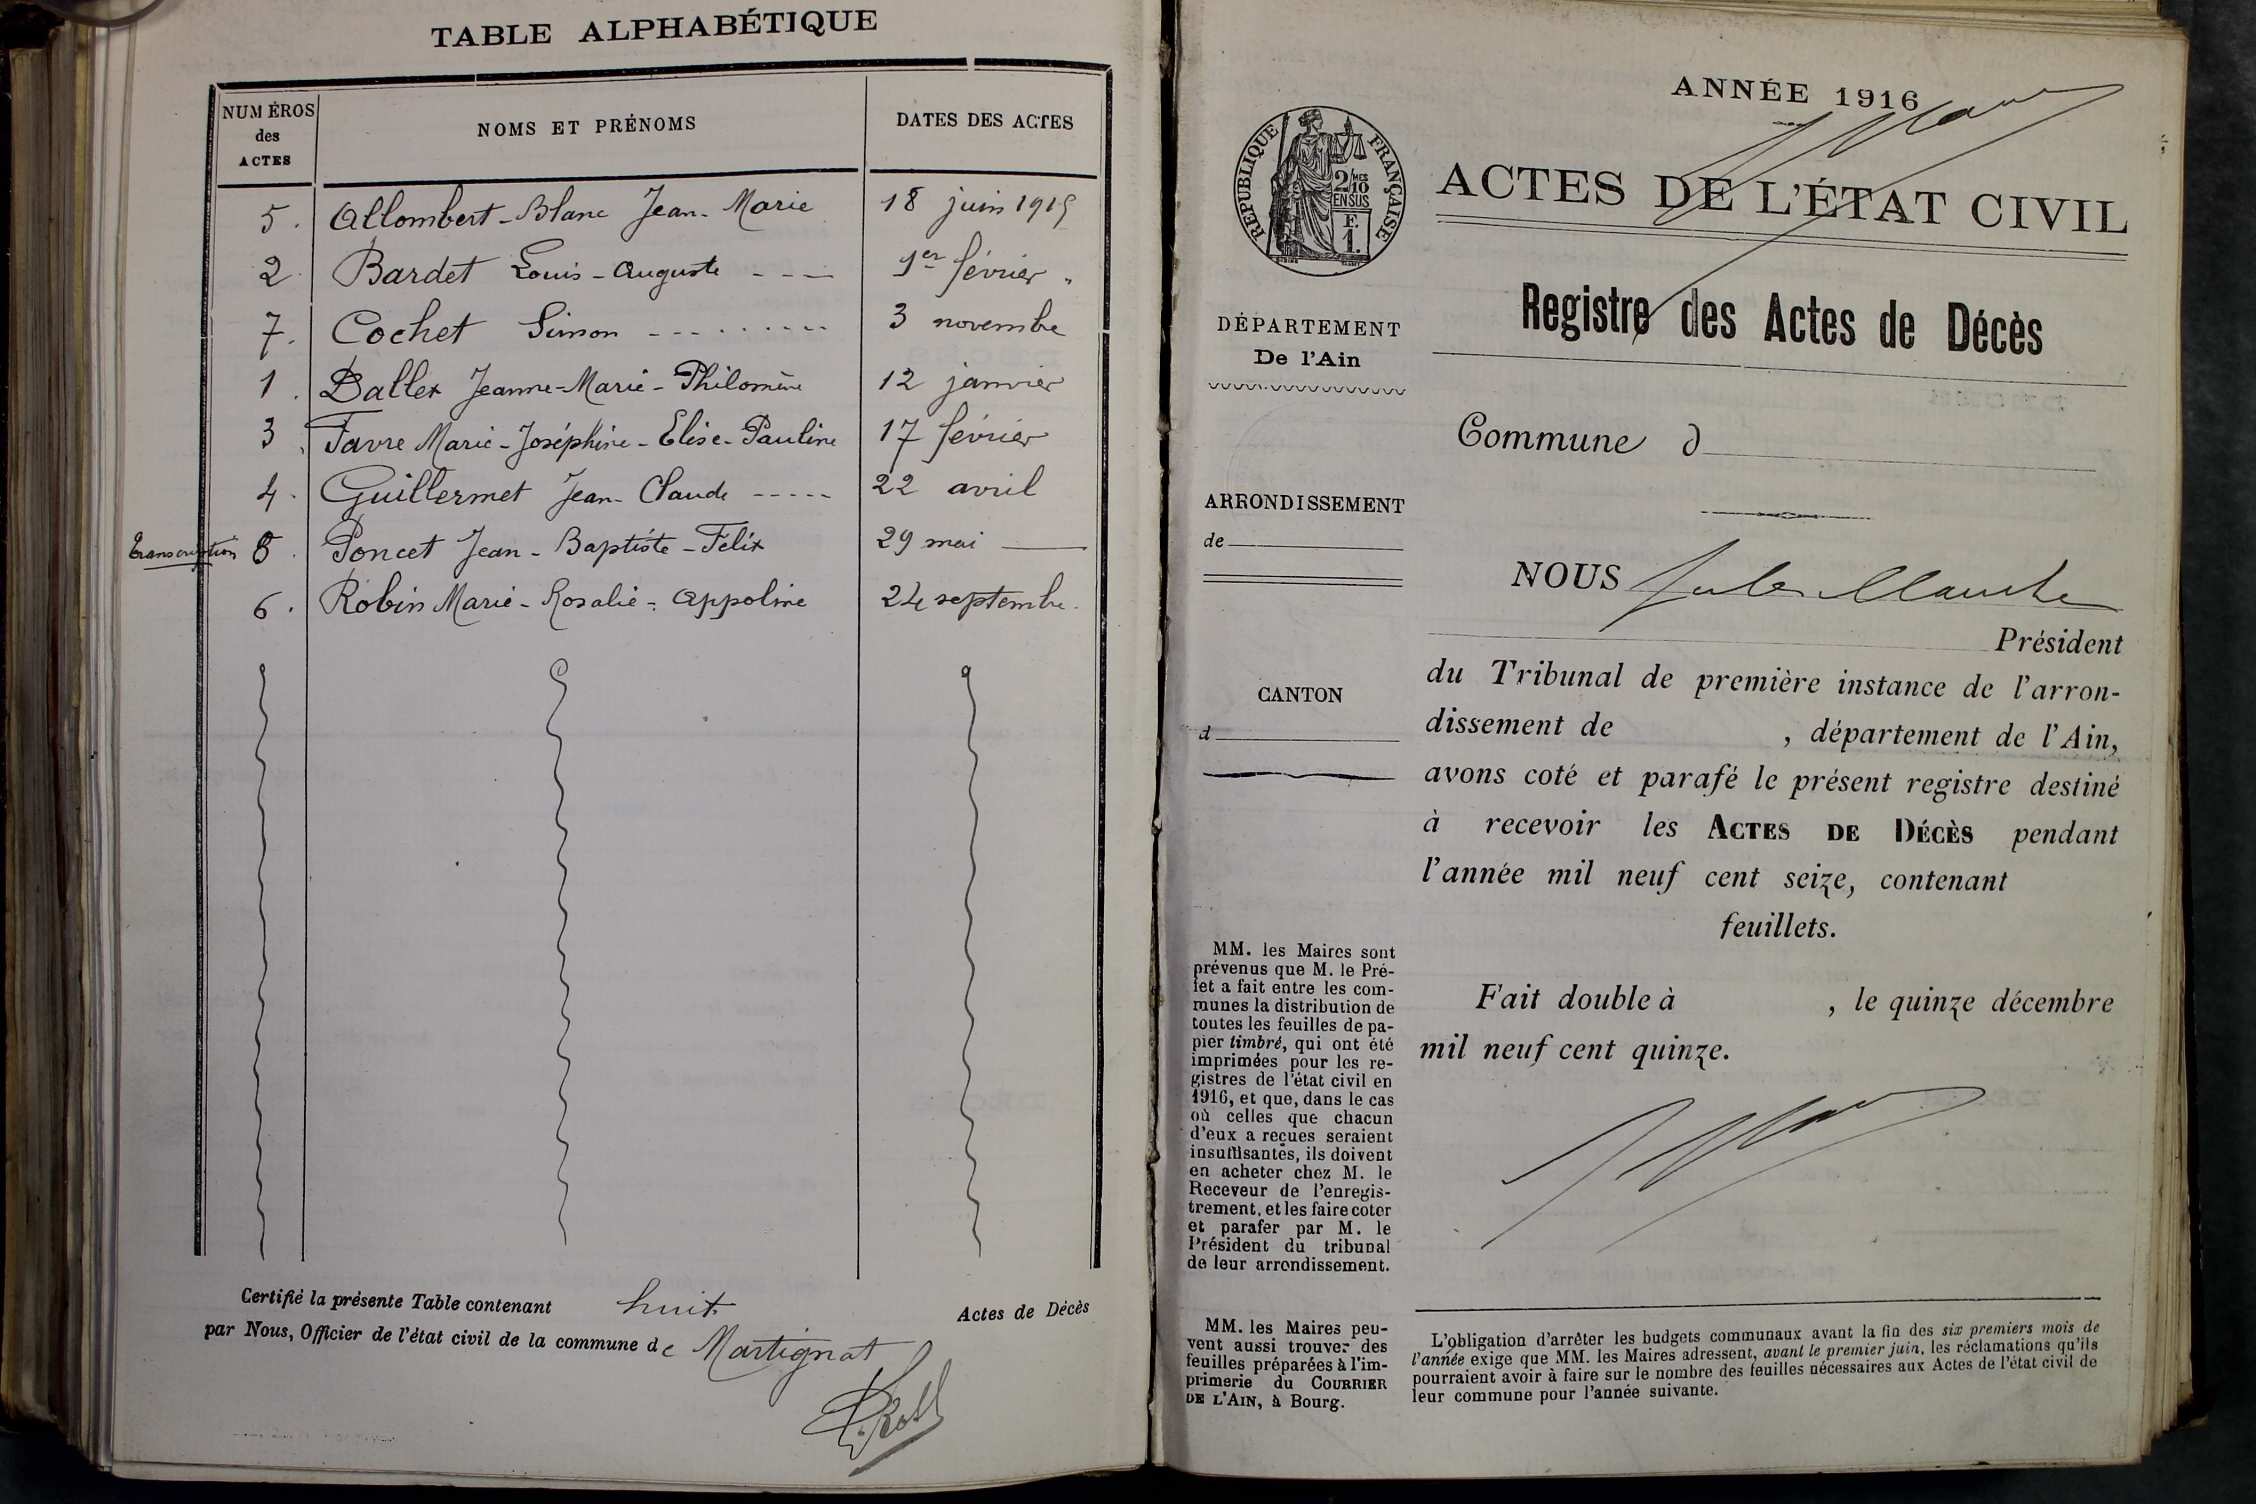 TABLE ALPHABÉTIQUE
NUMÉROS des ACTES NOMS ET PRÉNOMS DATES DES ACTES
5. Allombert-Blanc Jean-Marie 18 juin 1915
2. Bardet Louis-Auguste 1er février
7. Cochet Simon 3 novembre
1. Ballet Jeanne-Marie-Philomène 12 janvier
3. Favre Marie-Joséphine-Elise-Pauline 17 février
4. Guillermet Jean-Claude 22 avril
Transcription 8. Poncet Jean-Baptiste-Félix 29 mai
6. Robin Marie-Rosalie-Appoline 24 septembre
Certifié la présente Table contenant huit Actes de Décès
par Nous, Officier de l'état civil de la commune de Martignat
ANNÉE 1916
RÉPUBLIQUE FRANÇAISE
2/10 MES
EN SUS
F.
1.
ACTES DE L'ÉTAT CIVIL
Registre des Actes de Décès
DÉPARTEMENT
De l'Ain
Commune d
ARRONDISSEMENT
de
CANTON
d
NOUS Jules
Président
du Tribunal de première instance de l'arron-
dissement de , département de l'Ain,
avons coté et parafé le présent registre destiné
à recevoir les ACTES DE DÉCÈS pendant
l'année mil neuf cent seize, contenant
feuillets.
Fait double à , le quinze décembre
mil neuf cent quinze.
MM. les Maires sont
prévenus que M. le Pré-
fet a fait entre les com-
munes la distribution de
toutes les feuilles de pa-
pier timbré, qui ont été
imprimées pour les re-
gistres de l'état civil en
1916, et que, dans le cas
où celles que chacun
d'eux a reçues seraient
insuffisantes, ils doivent
en acheter chez M. le
Receveur de l'enregis-
trement, et les faire coter
et parafer par M. le
Président du tribunal
de leur arrondissement.
MM. les Maires peu-
vent aussi trouver des
feuilles préparées à l'im-
primerie du COURRIER
DE L'AIN, à Bourg.
L'obligation d'arrêter les budgets communaux avant la fin des six premiers mois de
l'année exige que MM. les Maires adressent, avant le premier juin, les réclamations qu'ils
pourraient avoir à faire sur le nombre des feuilles nécessaires aux Actes de l'état civil de
leur commune pour l'année suivante.